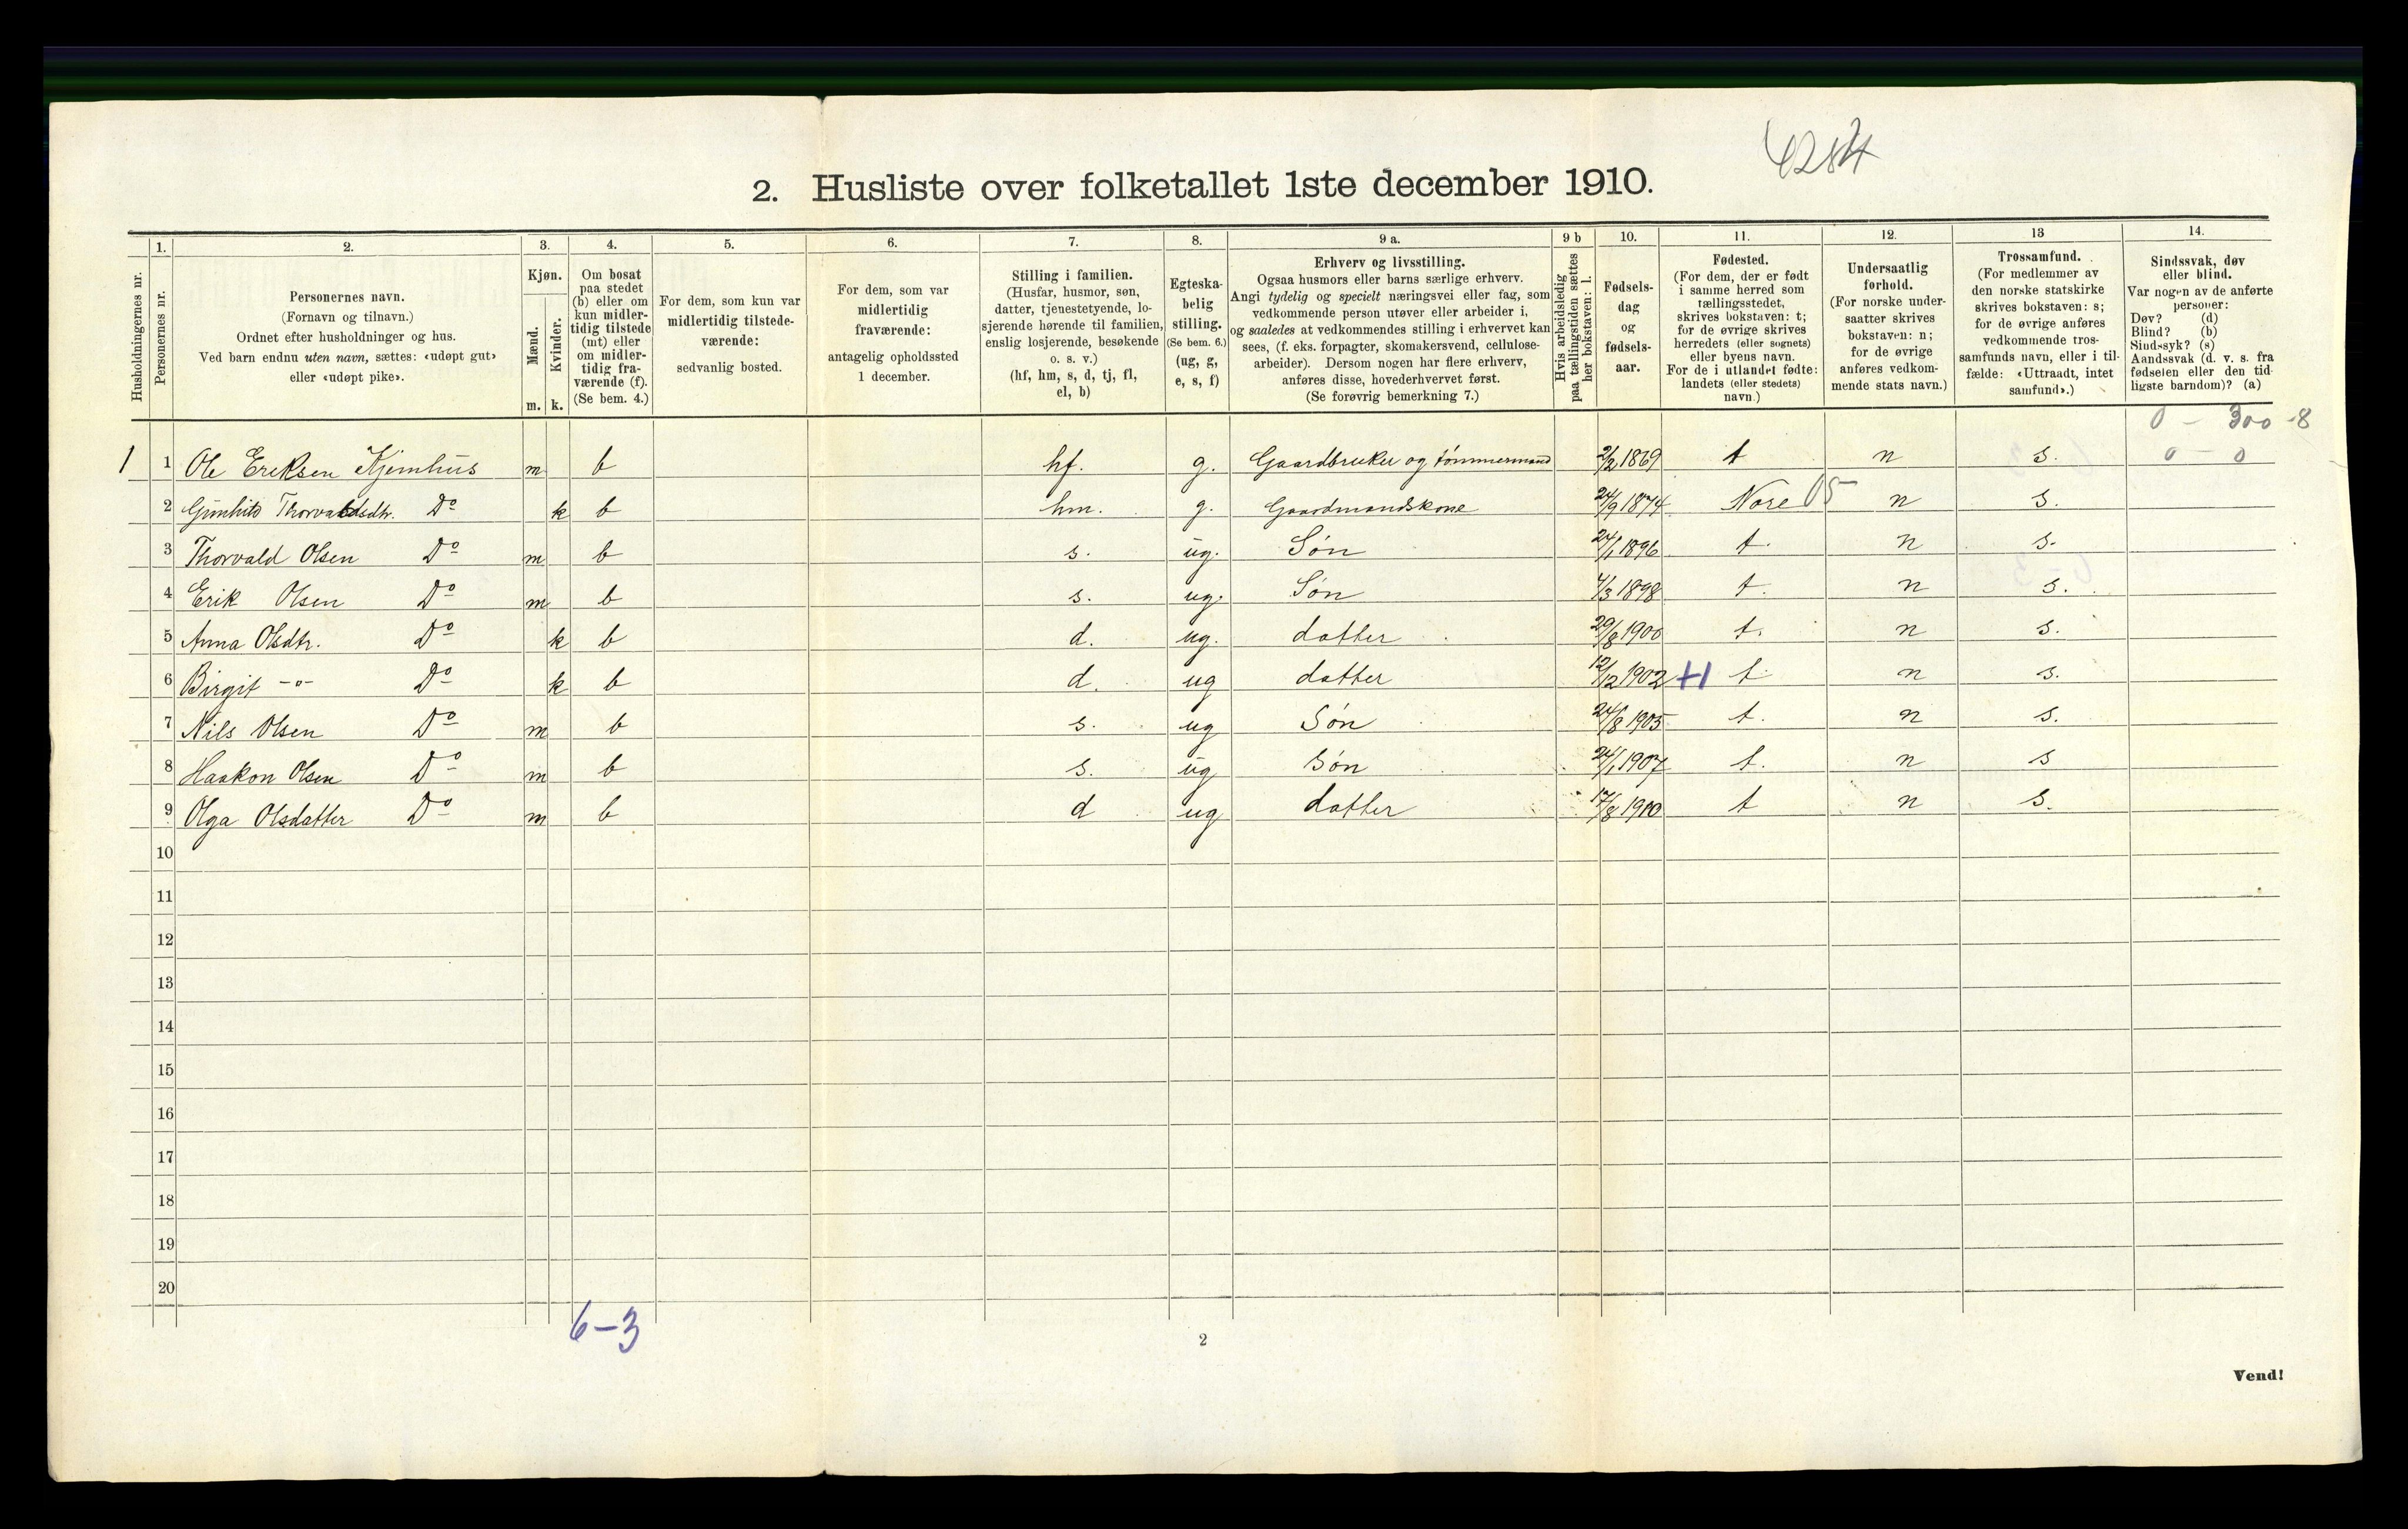 4284
2. Husliste over folketallet 1ste december 1910.
1. 2. 3. 4. 5. 6. 7. 8. 9 a. 9 b 10. 11. 12. 13 14.
Husholdningernes nr.
Personernes nr.
Personernes navn.
(Fornavn og tilnavn.)
Ordnet efter husholdninger og hus.
Ved barn endnu uten navn, sættes: «udøpt gut»
eller «udøpt pike».
Kjøn.
Mænd.
Kvinder.
m. k.
Om bosat
paa stedet
(b) eller om
kun midler-
tidig tilstede
(mt) eller
om midler-
tidig fra-
værende (f).
(Se bem. 4.)
For dem, som kun var
midlertidig tilstede-
værende:
sedvanlig bosted.
For dem, som var
midlertidig
fraværende:
antagelig opholdssted
1 december.
Stilling i familien.
(Husfar, husmor, søn,
datter, tjenestetyende, lo-
sjerende hørende til familien,
enslig losjerende, besøkende
o. s. v.)
(hf, hm, s, d, tj, fl,
el, b)
Egteska-
belig
stilling.
(Se bem. 6.)
(ug, g,
e, s, f)
Erhverv og livsstilling.
Ogsaa husmors eller barns særlige erhverv.
Angi tydelig og specielt næringsvei eller fag, som
vedkommende person utøver eller arbeider i,
og saaledes at vedkommendes stilling i erhvervet kan
sees, (f. eks. forpagter, skomakersvend, cellulose-
arbeider). Dersom nogen har flere erhverv,
anføres disse, hovederhvervet først.
(Se forøvrig bemerkning 7.)
Hvis arbeidsledig
paa tællingstiden sættes
her bokstaven: l.
Fødsels-
dag
og
fødsels-
aar.
Fødested.
(For dem, der er født
i samme herred som
tællingsstedet,
skrives bokstaven: t;
for de øvrige skrives
herredets (eller sognets)
eller byens navn.
For de i utlandet fødte:
landets (eller stedets)
navn.)
Undersaatlig
forhold.
(For norske under-
saatter skrives
bokstaven: n;
for de øvrige
anføres vedkom-
mende stats navn.)
Trossamfund.
(For medlemmer av
den norske statskirke
skrives bokstaven: s;
for de øvrige anføres
vedkommende tros-
samfunds navn, eller i til-
fælde: «Uttraadt, intet
samfund».)
Sindssvak, døv
eller blind.
Var nogen av de anførte
personer:
Døv? (d)
Blind? (b)
Sindssyk? (s)
Aandssvak (d. v. s. fra
fødselen eller den tid-
ligste barndom)? (a)
0 – 300 -8
1 1 Ole Eriksen Kjemhus m b hf. g. Gaardbruker og tømmermand 2/2 1869 t n s. 0 – 0
2 Gunhild Thorvaldsdtr. Do k b hm. g. Gaardmandskone 24/9 1874 Nore 05 n s.
3 Thorvald Olsen Do m b s. ug. Søn 24/1 1896 t. n s.
4 Erik Olsen Do m b s. ug. Søn 4/3 1898 t. n s.
5 Anna Olsdtr. Do k b d. ug. datter 29/8 1900 t. n s.
6 Birgit -"- Do k b d. ug datter 12/12 1902 t n s.
7 Nils Olsen Do m b s. ug Søn 24/8 1905 t. n s.
8 Haakon Olsen Do m b s. ug Søn 24/1 1907 t. n s
9 Olga Olsdatter Do m b d ug datter 17/8 1910 t n s.
10
11
12
13
14
15
16
17
18
19
20
6–3
2
Vend!